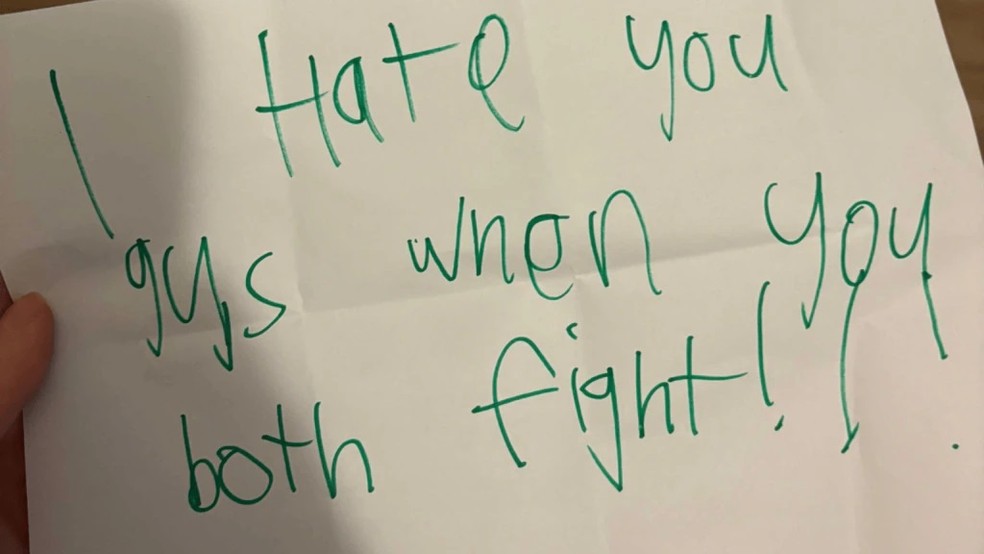 I Hate you
gys when you
both fight!!!